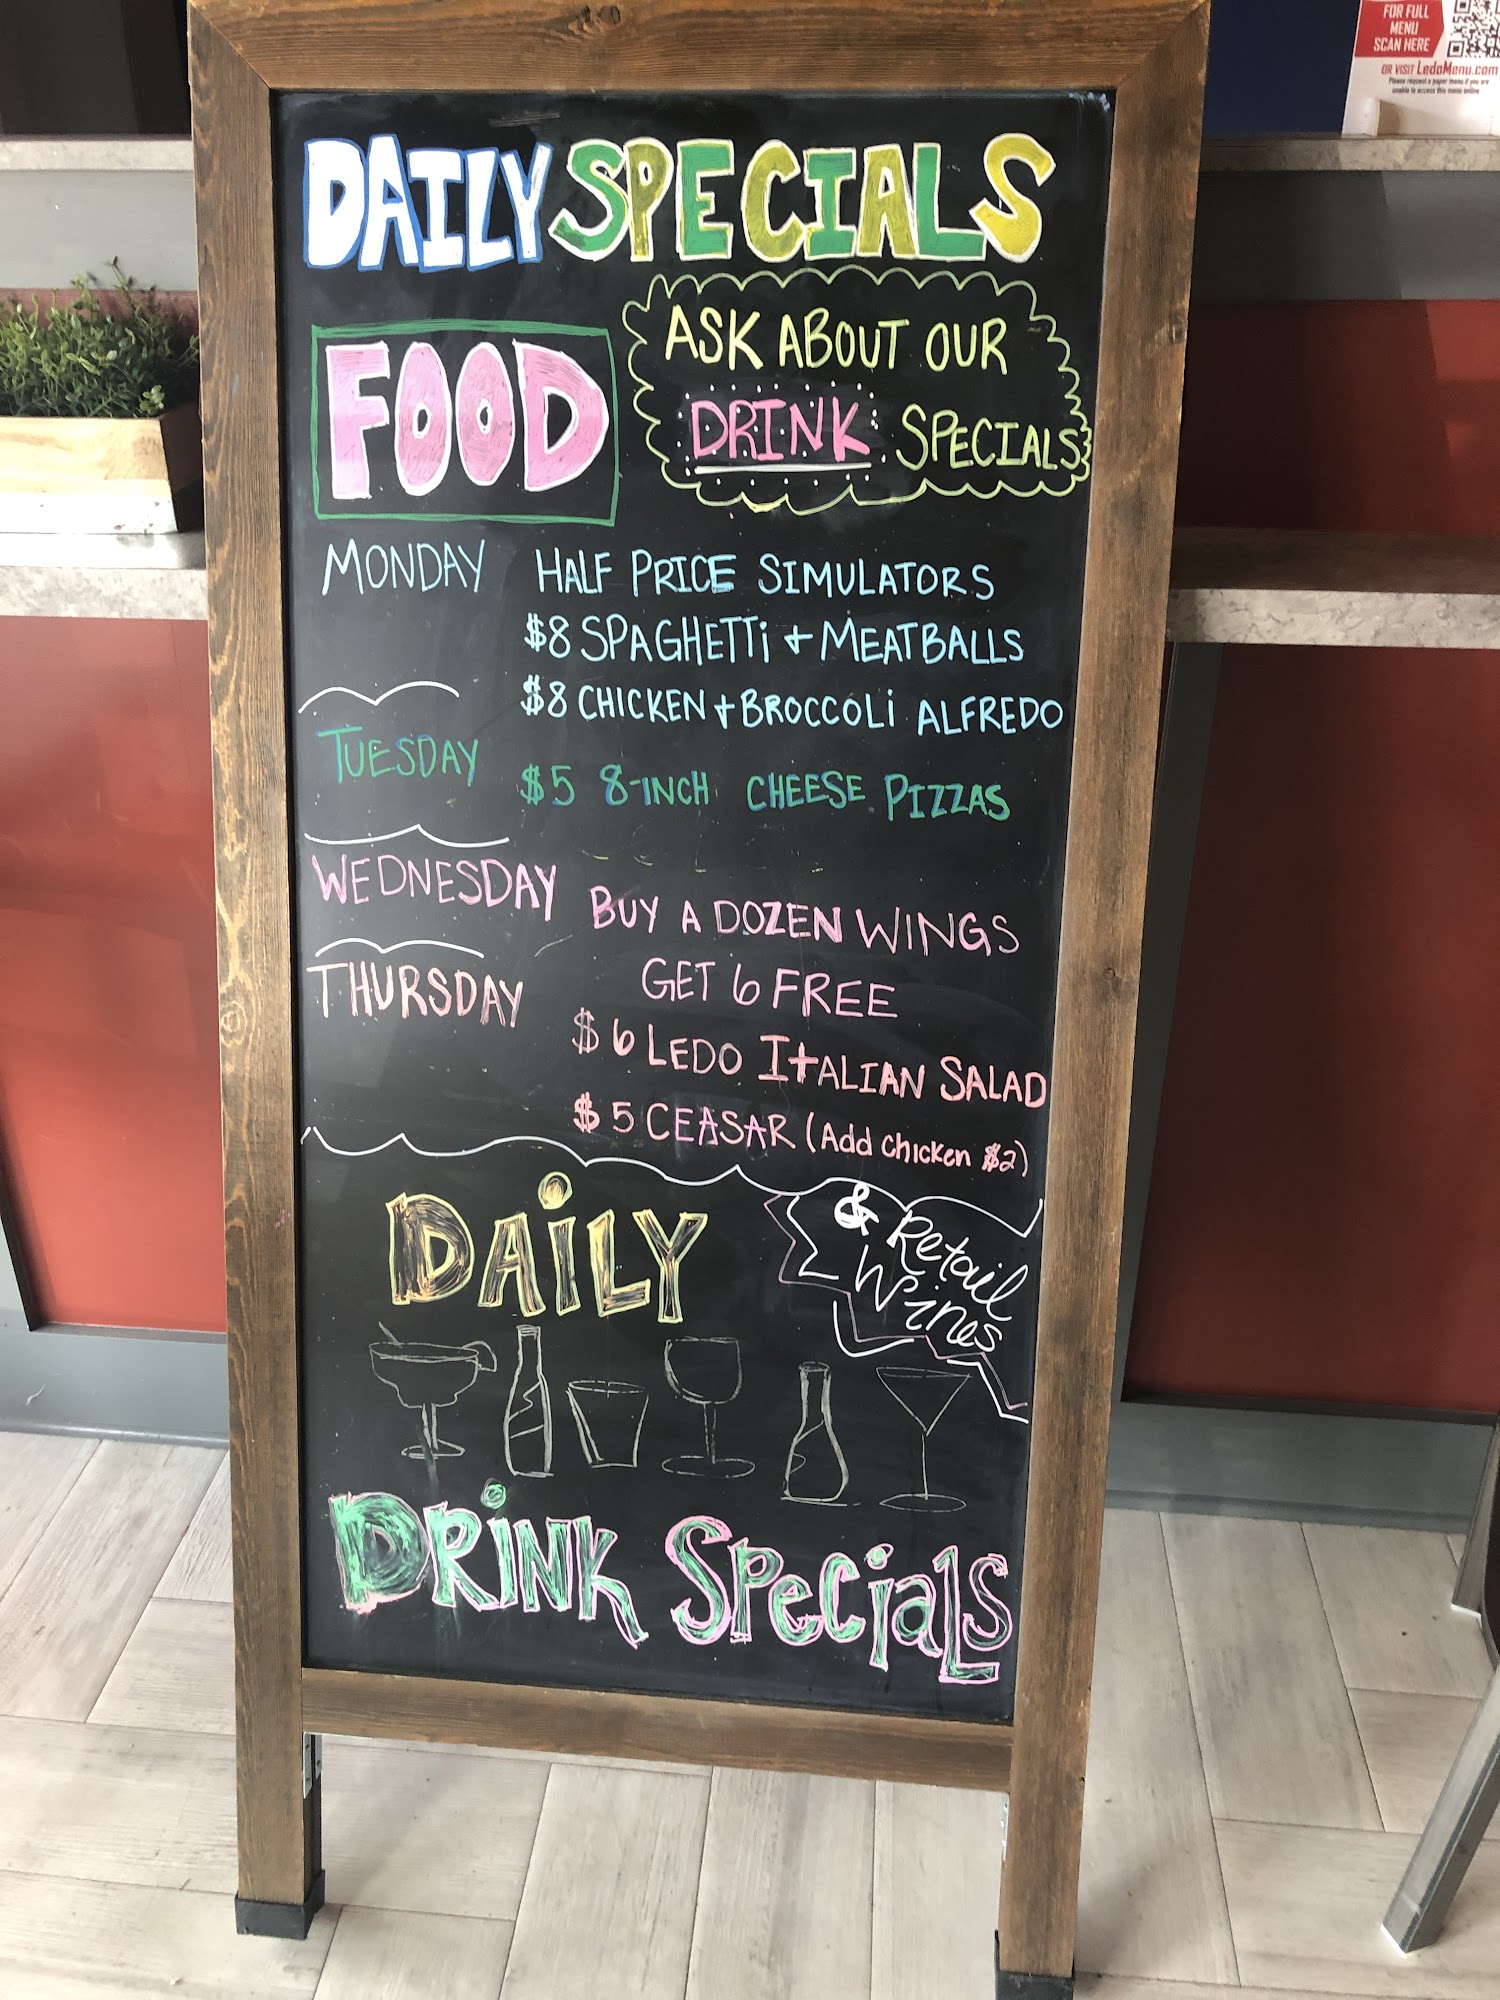 FOR FULL
MENU
SCAN HERE
OR VISIT LedoMenu.com
Please request a paper menu if you are
unable to access this menu online
DAILY SPECIALS
FOOD
ASK ABOUT OUR
DRINK SPECIALS
MONDAY HALF PRICE SIMULATORS
$8 SPAGHETTi + MEATBALLS
$8 CHICKEN + BROCCOLi ALFREDO
TUESDAY $5 8-INCH CHEESE PIZZAS
WEDNESDAY BUY A DOZEN WINGS
GET 6 FREE
THURSDAY $6 LEDO ITALIAN SALAD
$5 CEASAR (Add chicken $2)
DAiLY
& Retail
Wines
DRiNK SPeCiaLS